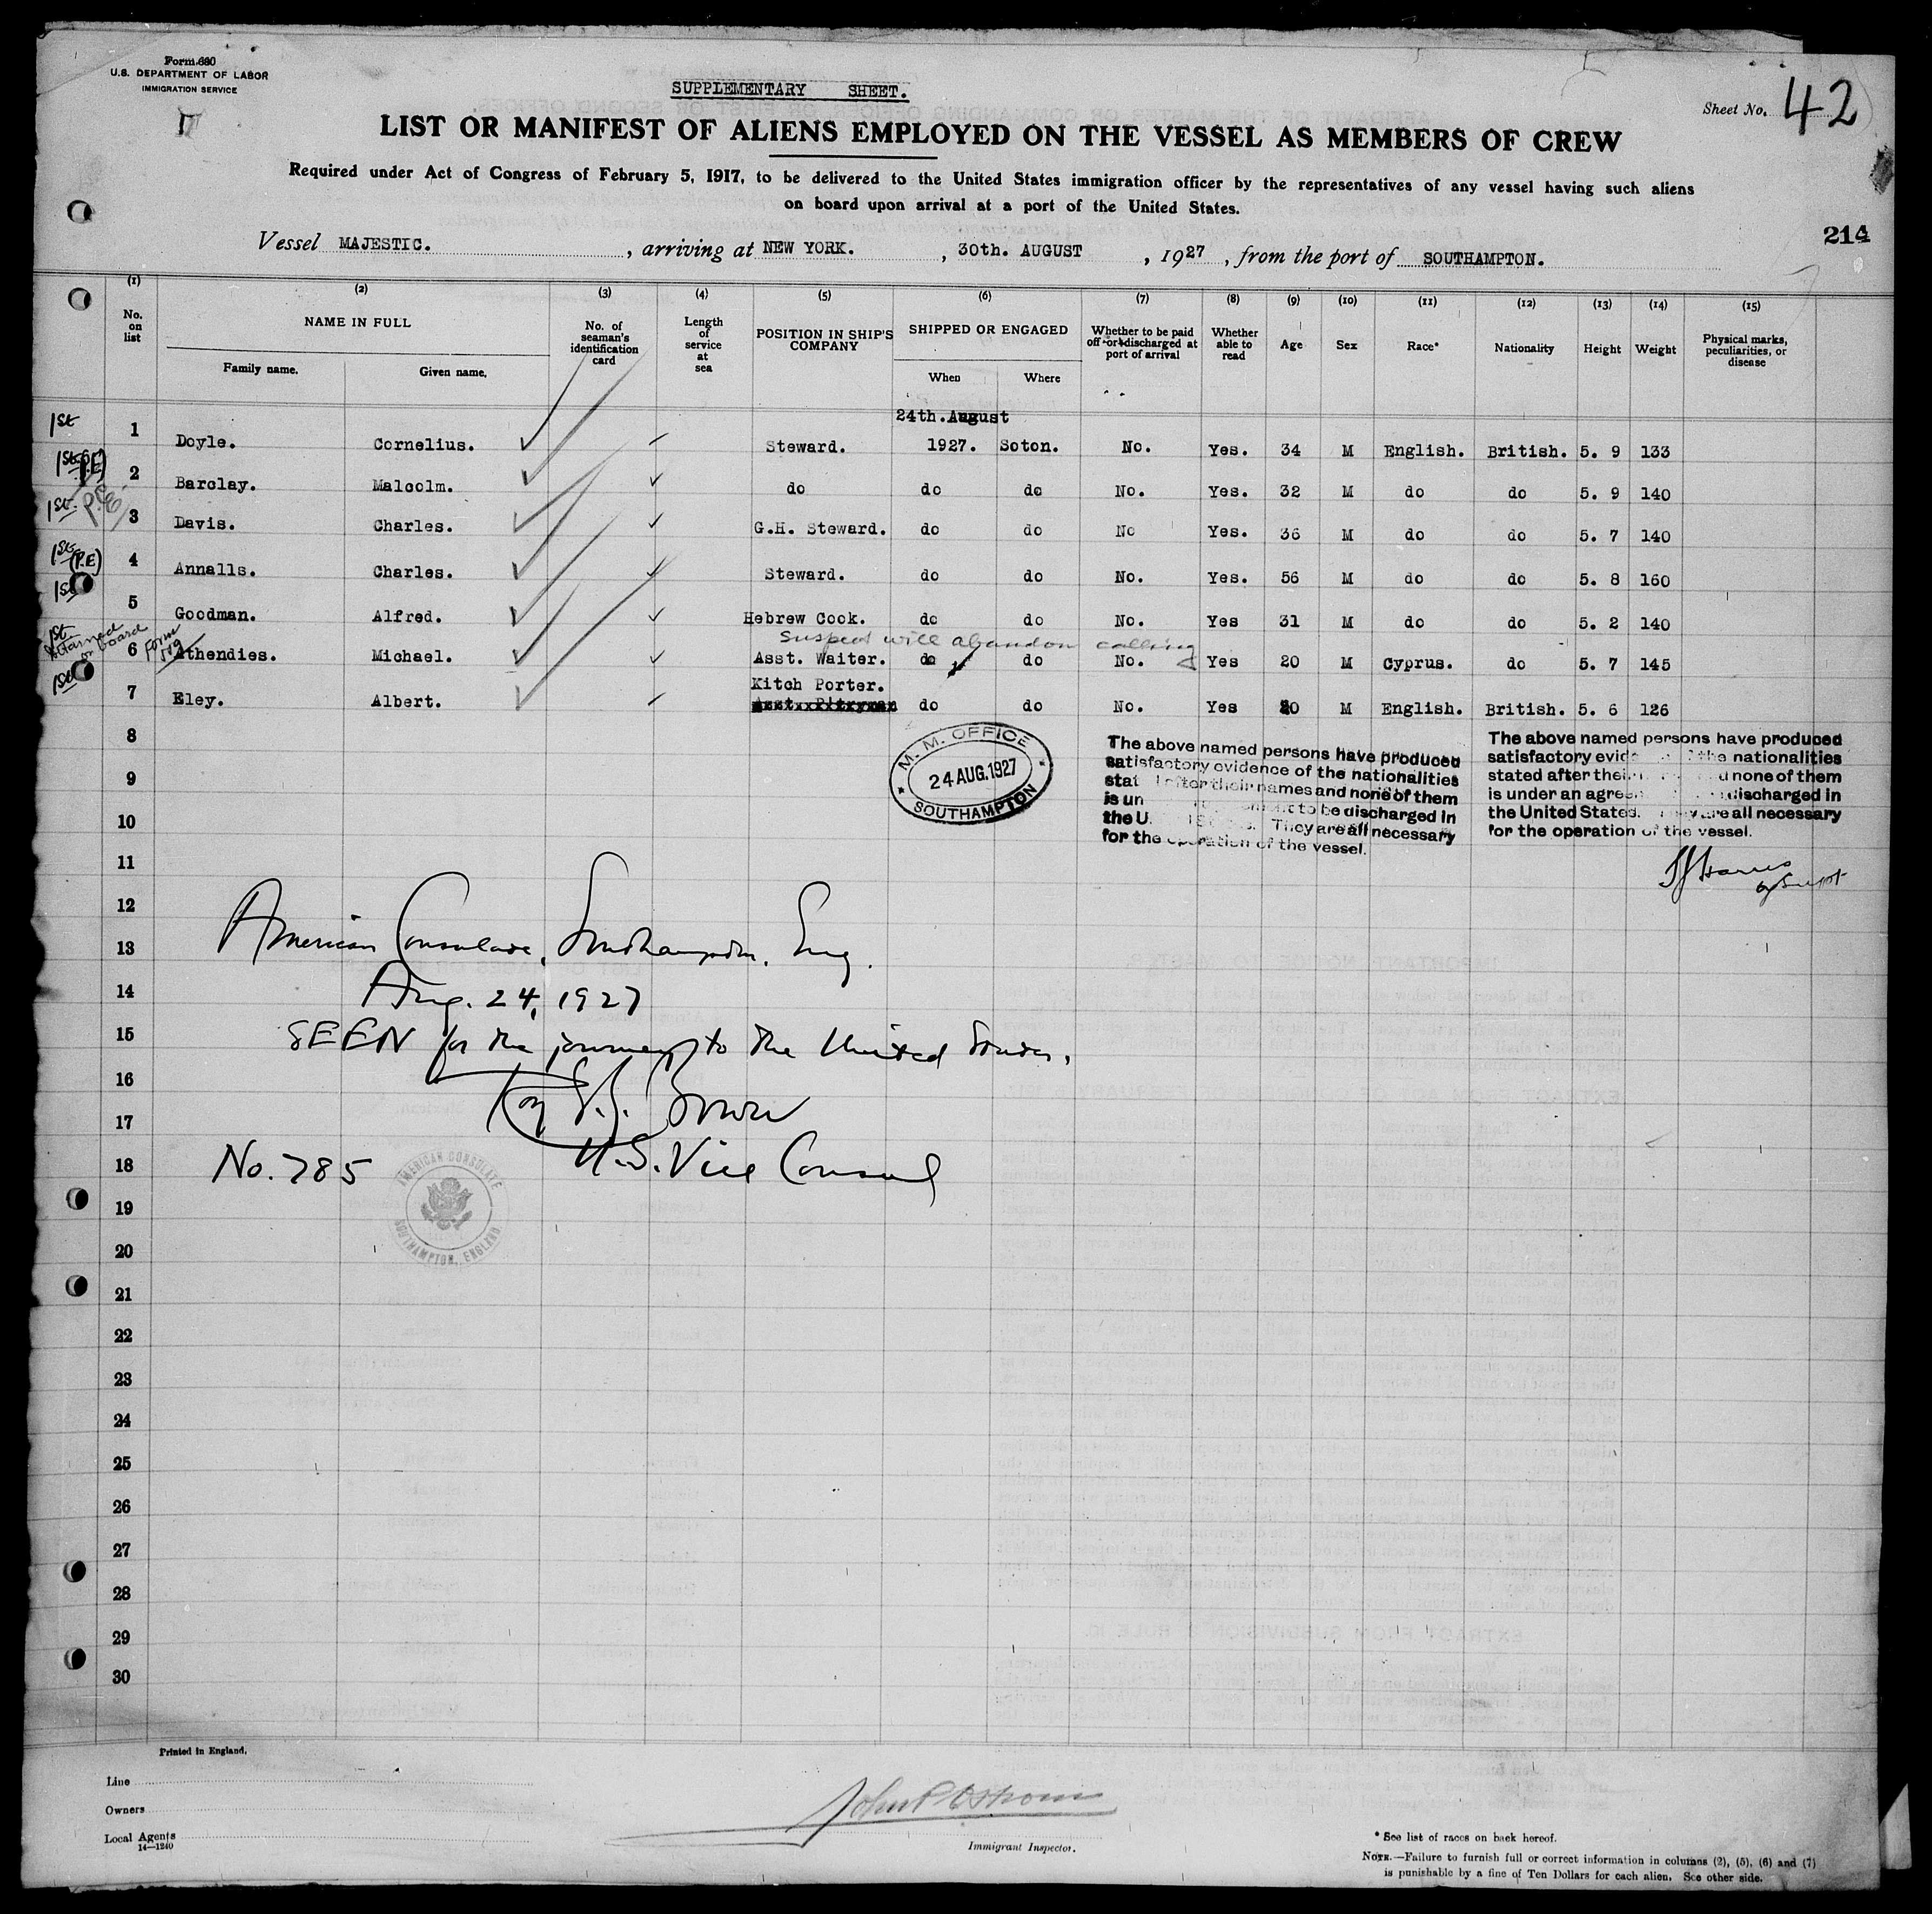 Form 680
U.S. DEPARTMENT OF LABOR
IMMIGRATION SERVICE
SUPPLEMENTARY SHEET.
Sheet No. 42
LIST OR MANIFEST OF ALIENS EMPLOYED ON THE VESSEL AS MEMBERS OF CREW
Required under Act of Congress of February 5, 1917, to be delivered to the United States immigration officer by the representatives of any vessel having such aliens
on board upon arrival at a port of the United States.
214
Vessel MAJESTIC. , arriving at NEW YORK. , 30th. AUGUST , 1927 , from the port of SOUTHAMPTON.
(1) (2) (3) (4) (5) (6) (7) (8) (9) (10) (11) (12) (13) (14) (15)
No. on list NAME IN FULL Family name. Given name. No. of seaman's identification card Length of service at sea POSITION IN SHIP'S COMPANY SHIPPED OR ENGAGED When Where Whether to be paid off or discharged at port of arrival Whether able to read Age Sex Race* Nationality Height Weight Physical marks, peculiarities, or disease
24th. August
1st 1 Doyle. Cornelius. Steward. 1927. Soton. No. Yes. 34 M English. British. 5. 9 133
1st (P.E) 2 Barclay. Malcolm. do do do No. Yes. 32 M do do 5. 9 140
1st. P.E. 3 Davis. Charles. G.H. Steward. do do No Yes. 36 M do do 5. 7 140
1st (P.E) 4 Annalls. Charles. Steward. do do No. Yes. 56 M do do 5. 8 160
1st 5 Goodman. Alfred. Hebrew Cook. do do No. Yes 31 M do do 5. 2 140
suspect will abandon calling
1st detained on board Form 519 6 Athendies. Michael. Asst. Waiter. do do No. Yes 20 M Cyprus. do 5. 7 145
Kitch Porter.
1st 7 Eley. Albert. do do No. Yes 20 M English. British. 5. 6 126
8
9
10
11
12
13
14
15
16
17
18
19
20
21
22
23
24
25
26
27
28
29
30
M. M. OFFICE
24 AUG.1927
SOUTHAMPTON
The above named persons have produced
satisfactory evidence of the nationalities
stat after their names and none of them
is un to be discharged in
the U. They are all necessary
for the operation of the vessel.
The above named persons have produced
satisfactory evid the nationalities
stated after their none of them
is under an agree discharged in
the United States. They are all necessary
for the operation of the vessel.
American Consulate, Southampton, Eng.
Aug. 24, 1927
SEEN for the journey to the United States.
Brown
U.S. Vice Consul
No. 785
AMERICAN CONSULATE
SOUTHAMPTON, ENGLAND.
Printed in England.
Line
Owners
Local Agents
14—1240
Immigrant Inspector.
* See list of races on back hereof.
NOTE.—Failure to furnish full or correct information in columns (2), (5), (6) and (7)
is punishable by a fine of Ten Dollars for each alien. See other side.